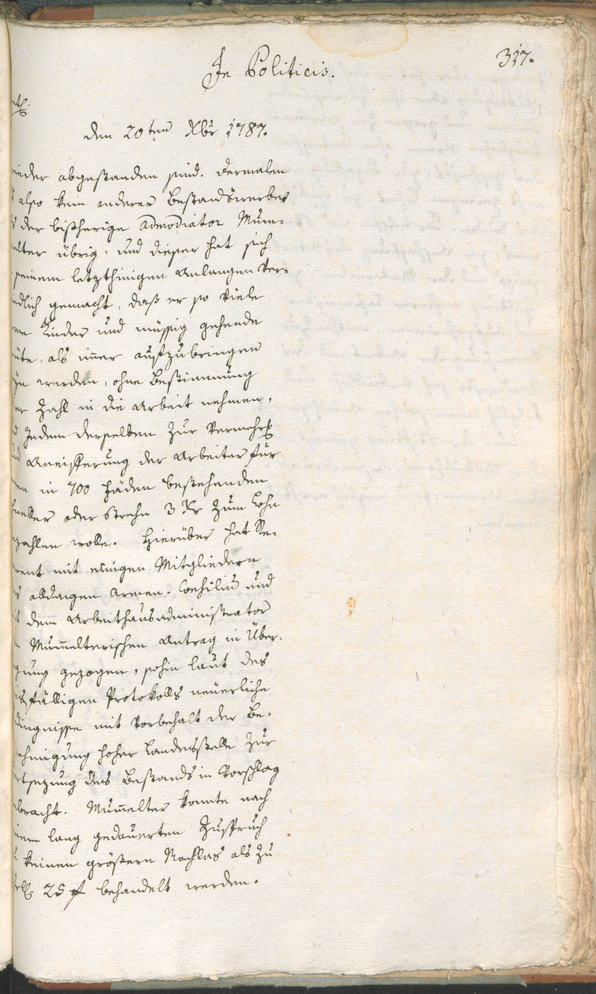 In Politicis.
317.
den 20ten Xbr 1787.
wieder abgestanden sind. dermalen
also kein anderer Bestandswerber
der bisherige Admodiator Mum=
elter übrig, und dieser hat sich
seinem letzthinigen Anlangen ver=
ndlich gemacht, daß er so viele
Kinder und müssig gehende
als immer aufzubringen
werden, ohne Bestimmung
er Zahl in die Arbeit nehmen,
Jedem derselben zur Vermehr
Aneiferung der Arbeiter für
in 700 fäden bestehenden
neller oder Strehn 3 Xr zum Lohn
zahlen wolle. Hierüber hat Re=
rent mit einigen Mitgliedern
alldaigen Armen Consilii und
dem Arbeithausadministrator
Mumelterischen Antrag in Über=
gung gezogen, sohin laut des
fälligen Protokolls neuerliche
dingnisse mit Vorbehalt der Be=
ehmigung hoher Landesstelle zur
tsezung des Bestands in Vorschlag
bracht. Mumelter konnte nach
lang gedauerten Zuspruch
keinen größern Nachlas als zu
25 f behandelt werden.